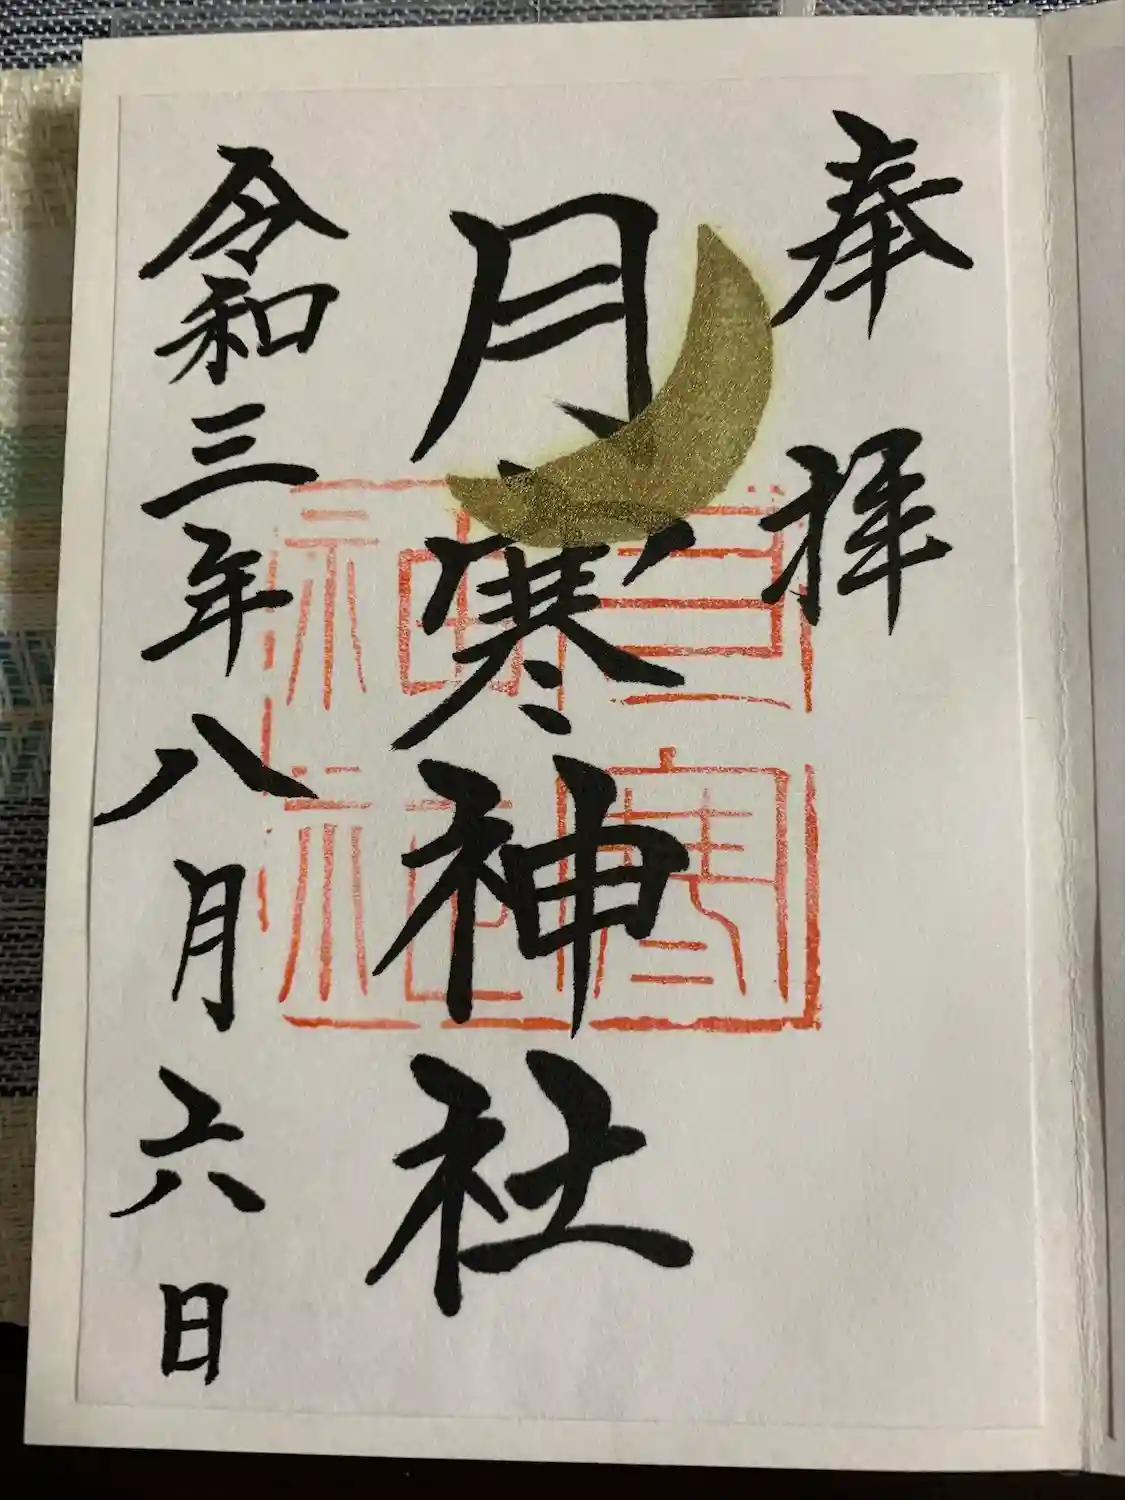 奉拝
月寒神社
令和三年八月六日
月寒神社